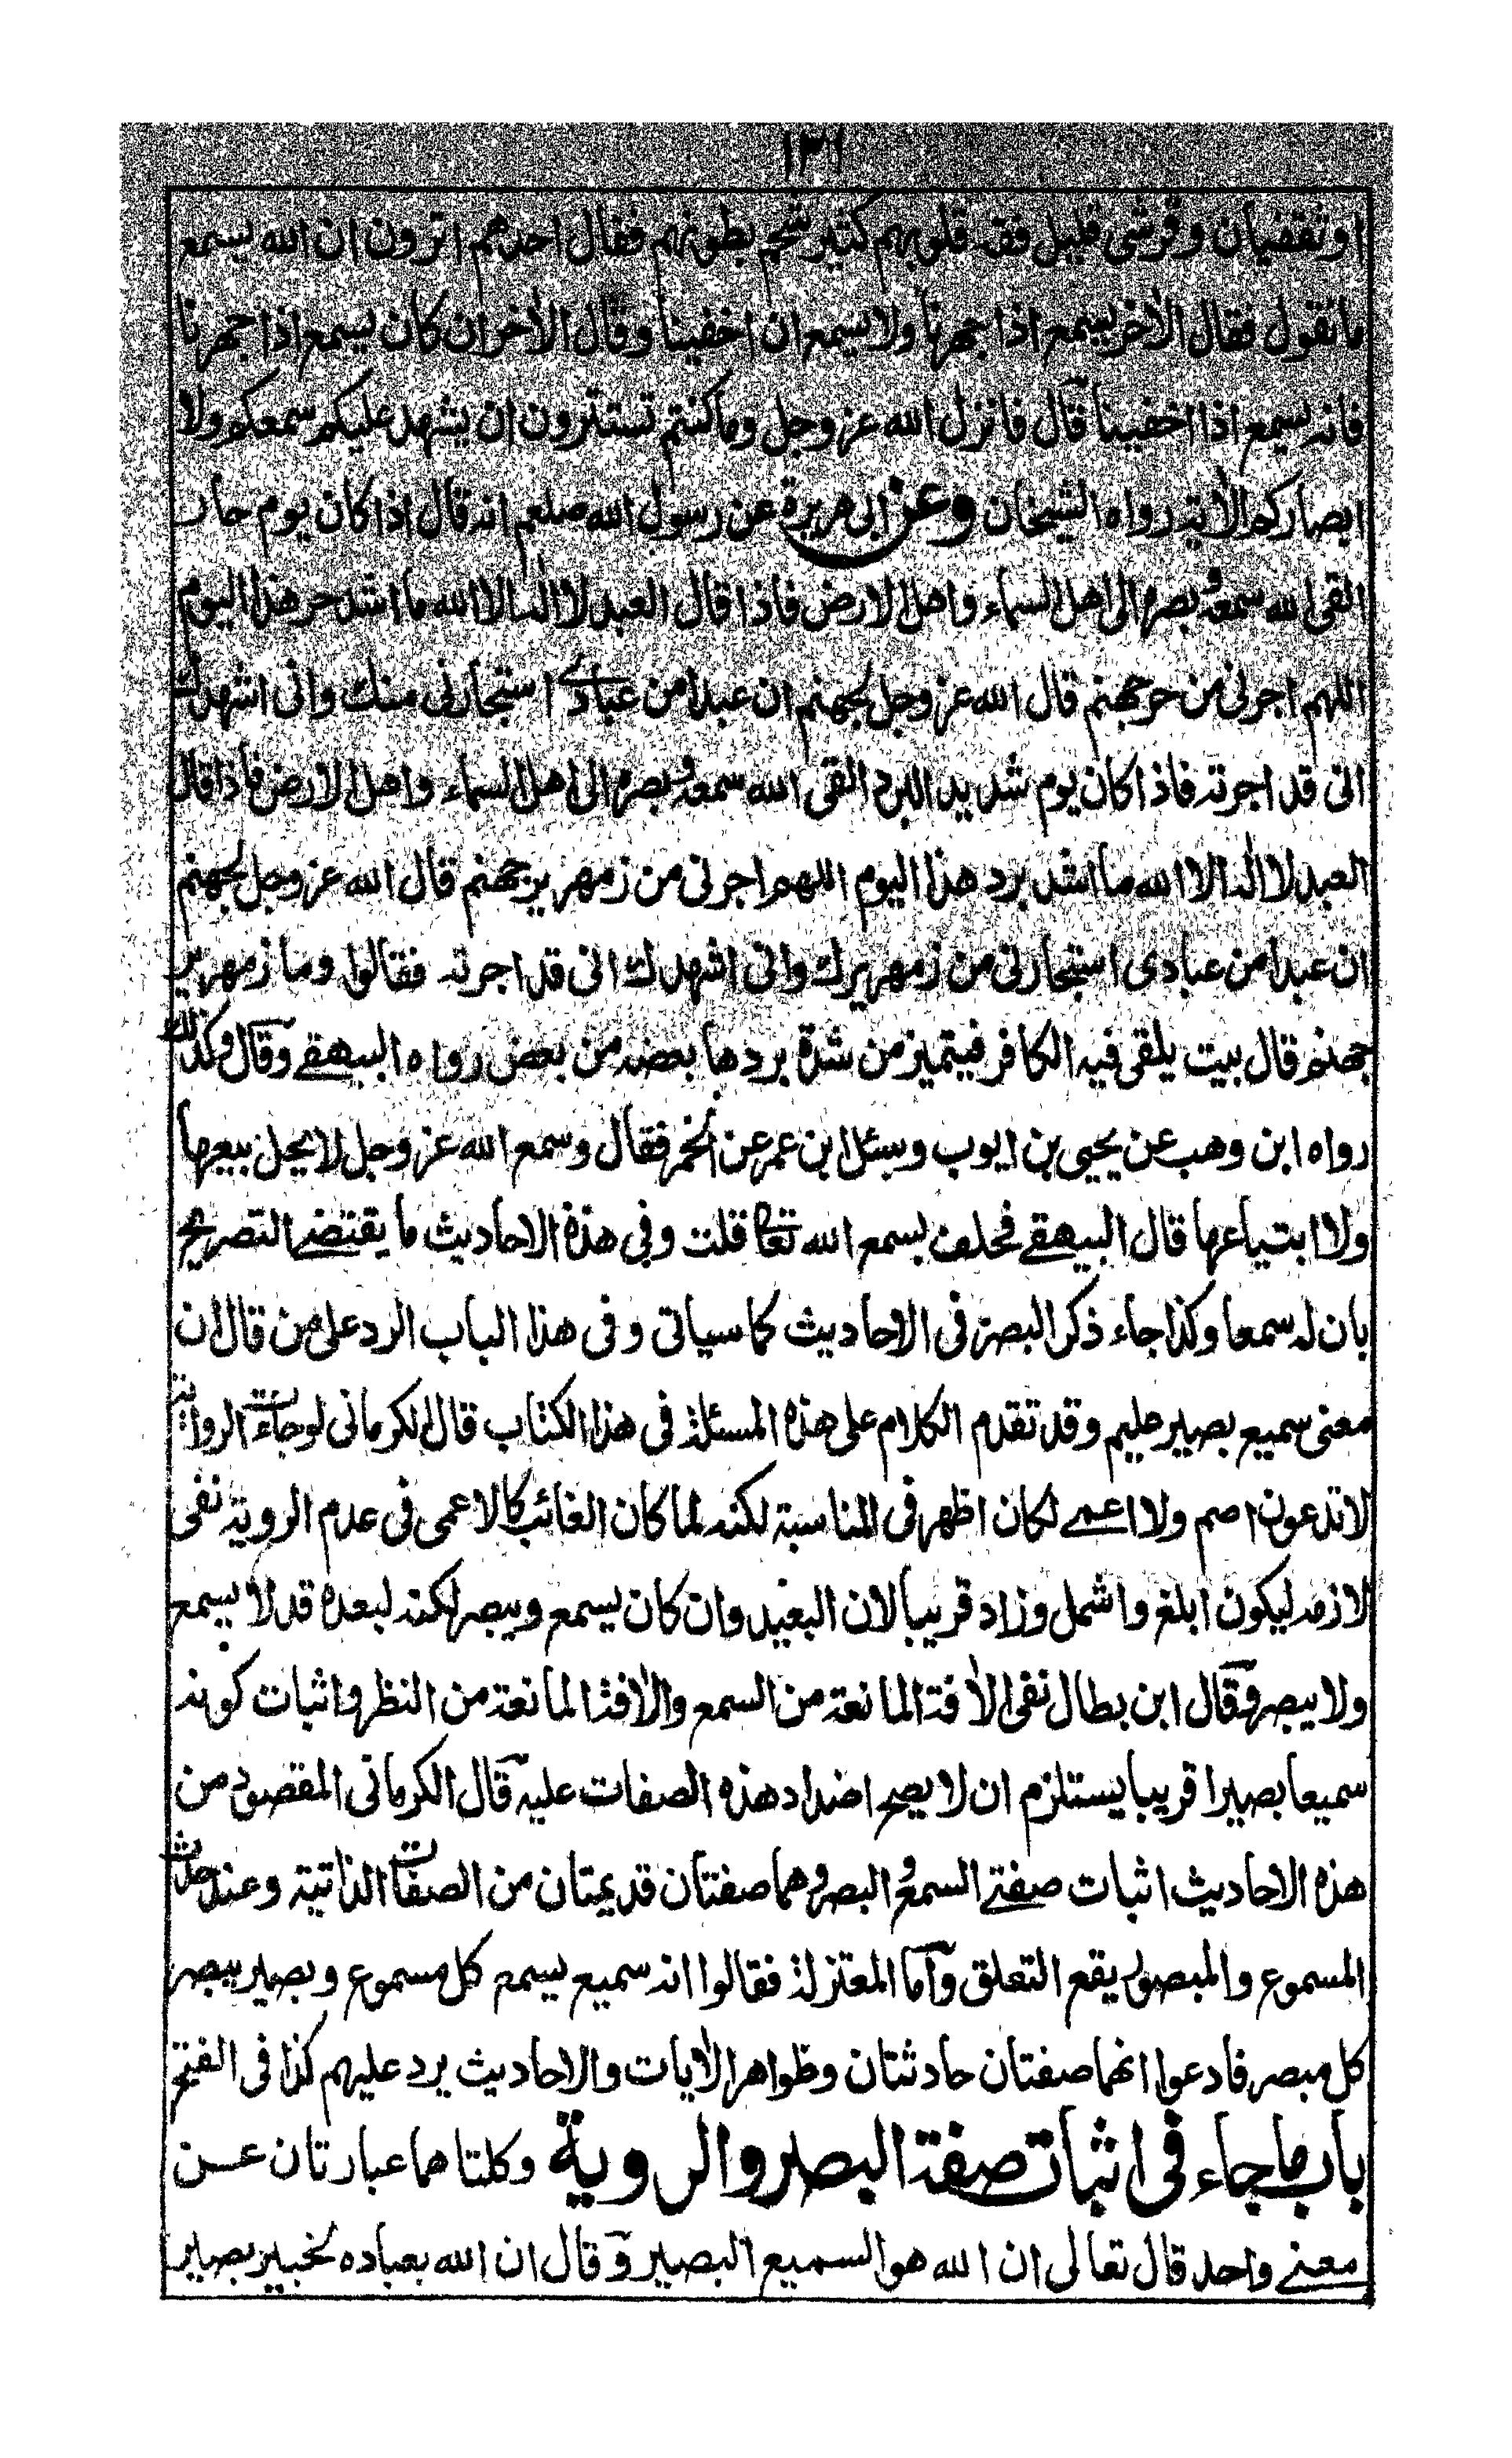 ١٣١
او ثقفيان وقرشى قليل فقه قلوبهم كثير شحم بطونهم فقال احدهم اترون ان الله يسمع
ما نقول فقال الآخر يسمع اذا جهرنا ولا يسمع ان اخفينا وقال الآخر ان كان يسمع اذا جهرنا
فانه سميع اذا اخفينا قال فانزل الله عز وجل وما كنتم تستترون ان يشهد عليكم سمعكم ولا
ابصاركم الآية رواه الشيخان وعن ابى هريرة عن رسول الله صلعم انه قال اذا كان يوم حار
القى الله سمعه وبصره الى اهل السماء واهل الارض فاذا قال العبد لا اله الا الله ما اشد حر هذا اليوم
اللهم اجرنى من حر جهنم قال الله عز وجل لجهنم ان عبدا من عبادى استجارنى منك وانى اشهدك
انى قد اجرته فاذا كان يوم شديد البرد القى الله سمعه وبصره الى اهل السماء واهل الارض فاذا قال
العبد لا اله الا الله ما اشد برد هذا اليوم اللهم اجرنى من زمهرير جهنم قال الله عز وجل لجهنم
ان عبدا من عبادى استجارنى من زمهريرك وانى اشهدك انى قد اجرته فقالوا وما زمهرير
جهنم قال بيت يلقى فيه الكافر فيتميز من شدة بردها بعضه من بعض رواه البيهقے وقال وكذلك
رواه ابن وهب عن يحيى بن ايوب وسئل ابن عمر عن الخمر فقال وسمع الله عز وجل لا يحل بيعها
ولا ابتياعها قال البيهقے فحلف بسمع الله تعا قلت وفى هذه الاحاديث ما يقتضے التصريح
بان له سمعا وكذا جاء ذكر البصر فى الاحاديث كما سياتى وفى هذا الباب الرد على من قال ان
معنى سميع بصير عليم وقد تقدم الكلام على هذه المسئلة فى هذا الكتاب قال الكرمانى لو جاءت الرواية
لا تدعون اصم ولا اعمے لكان اظهر فى المناسبة لكنه لما كان الغائب كالاعمى فى عدم الروية نفى
لازمه ليكون ابلغ واشمل وزاد قريبا لان البعيد وان كان يسمع ويبصر لكنه لبعده قد لا يسمع
ولا يبصر وقال ابن بطال نفى الآفة المانعة من السمع والآفة المانعة من النظر واثبات كونه
سميعا بصيرا قريبا يستلزم ان لا يصح اضداد هذه الصفات عليه قال الكرمانى المقصود من
هذه الاحاديث اثبات صفتے السمع والبصر وهما صفتان قديمتان من الصفات الذاتية وعند حدوث
المسموع والمبصر يقع التعلق واما المعتزلة فقالوا انه سميع يسمع كل مسموع وبصير يبصر
كل مبصر فادعوا انهما صفتان حادثتان وظواهر الآيات والاحاديث يرد عليهم كذا فى الفتح
باب ما جاء فى اثبات صفة البصر والروية وكلتاهما عبارتان عن
معنے واحد قال تعالى ان الله هو السميع البصير وقال ان الله بعباده لخبير بصير